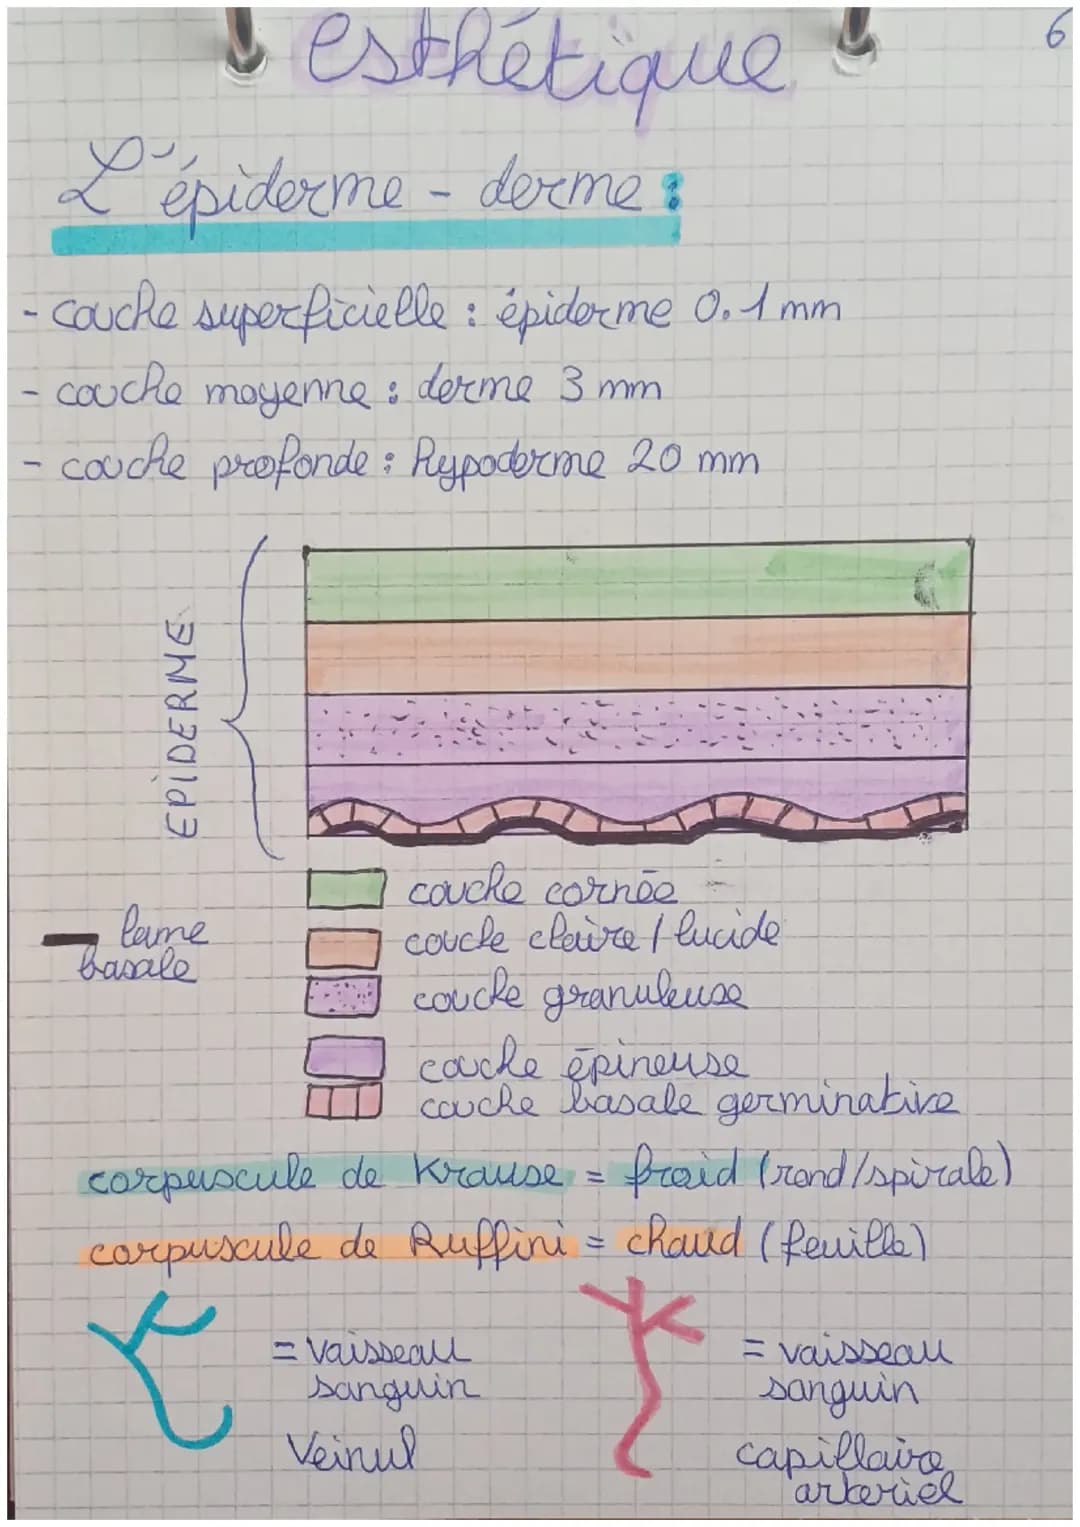 esthétique
6
L'épiderme - derme :
- couche superficielle : épiderme 0.1 mm
- couche moyenne : derme 3 mm
- couche profonde : hypoderme 20 mm
EPIDERME
couche cornée
lame
basale
couche claire / lucide
couche granuleuse
couche épineuse
couche basale germinative
corpuscule de Krause = froid (rond/spirale)
corpuscule de Ruffini = chaud (feuille)
= vaisseau
sanguin
Veinul
= vaisseau
sanguin
capillaire
arteriel